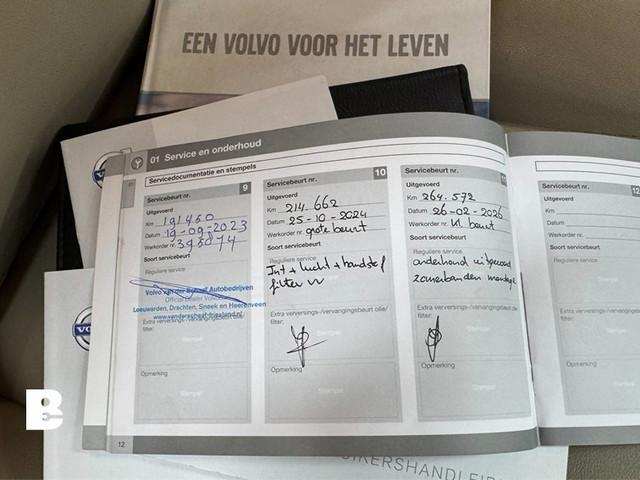 EEN VOLVO VOOR HET LEVEN
01 Service en onderhoud
Servicedocumentatie en stempels
Servicebeurt nr. 9
Uitgevoerd
Km 191450
Datum 19-09-2023
Werkorder nr. 395074
Soort servicebeurt
Reguliere service
Volvo van der Schaaf Autobedrijven
Official Dealer
Leeuwarden, Drachten, Sneek en Heerenveen
www.vanderschaaf-friesland.nl
Extra verversings-/vervangingsbeurt olie/
filter:
Stempel
Opmerking
Stempel
12
Servicebeurt nr. 10
Uitgevoerd
Km 214.662
Datum 25-10-2024
Werkorder nr. grote beurt
Soort servicebeurt
Reguliere service
Int + lucht + brandstof
filter VV
Extra verversings-/vervangingsbeurt olie/
filter:
Opmerking
Stempel
Servicebeurt nr.
Uitgevoerd
Km 264.572
Datum 26-02-2026
Werkorder nr. kl. beurt
Soort servicebeurt
Reguliere service
onderhoud uitgevoerd
zomerbanden montage
Extra verversings-/vervangingsbeurt olie/
filter:
Opmerking
Stempel
Servicebeurt nr. 12
Uitgevoerd
Km
Datum
Werkorder nr.
Soort servicebeurt
Reguliere service
Extra verversings-/vervang
filter:
Opmerking